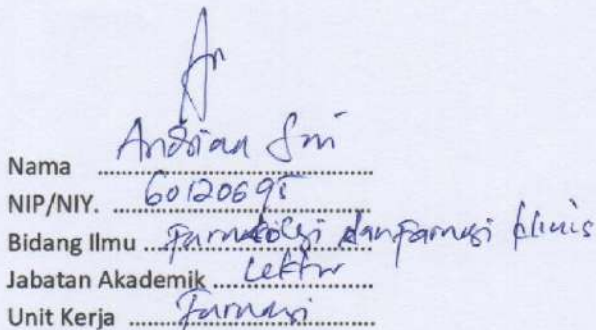 Nama Andriana Sri
NIP/NIY. 60120695
Bidang Ilmu Farmakologi dan Farmasi klinis
Jabatan Akademik Lektor
Unit Kerja Farmasi